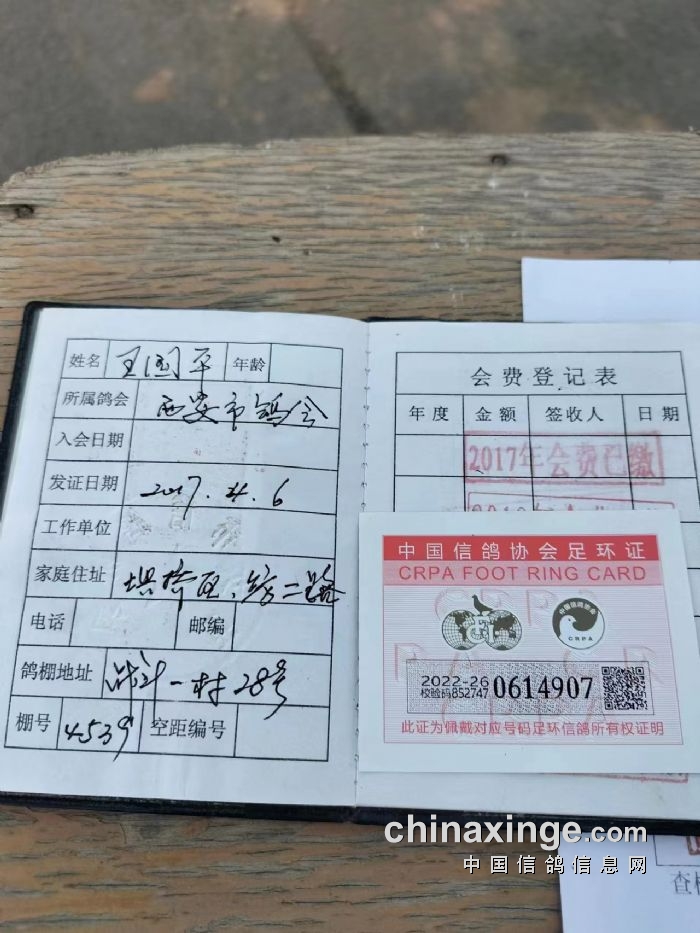 姓名 王国平 年龄
所属鸽会 西安市鸽会
入会日期
发证日期 2017.4.6
工作单位
家庭住址 纺二路
电话 邮编
鸽棚地址 一村28号
棚号 4539 空距编号
会费登记表
年度 金额 签收人 日期
2017年会费已缴
中国信鸽协会足环证
CRPA FOOT RING CARD
中国信鸽协会
CRPA
2022-26
校验码852747
0614907
此证为佩戴对应号码足环信鸽所有权证明
chinaxinge.com
中国信鸽信息网